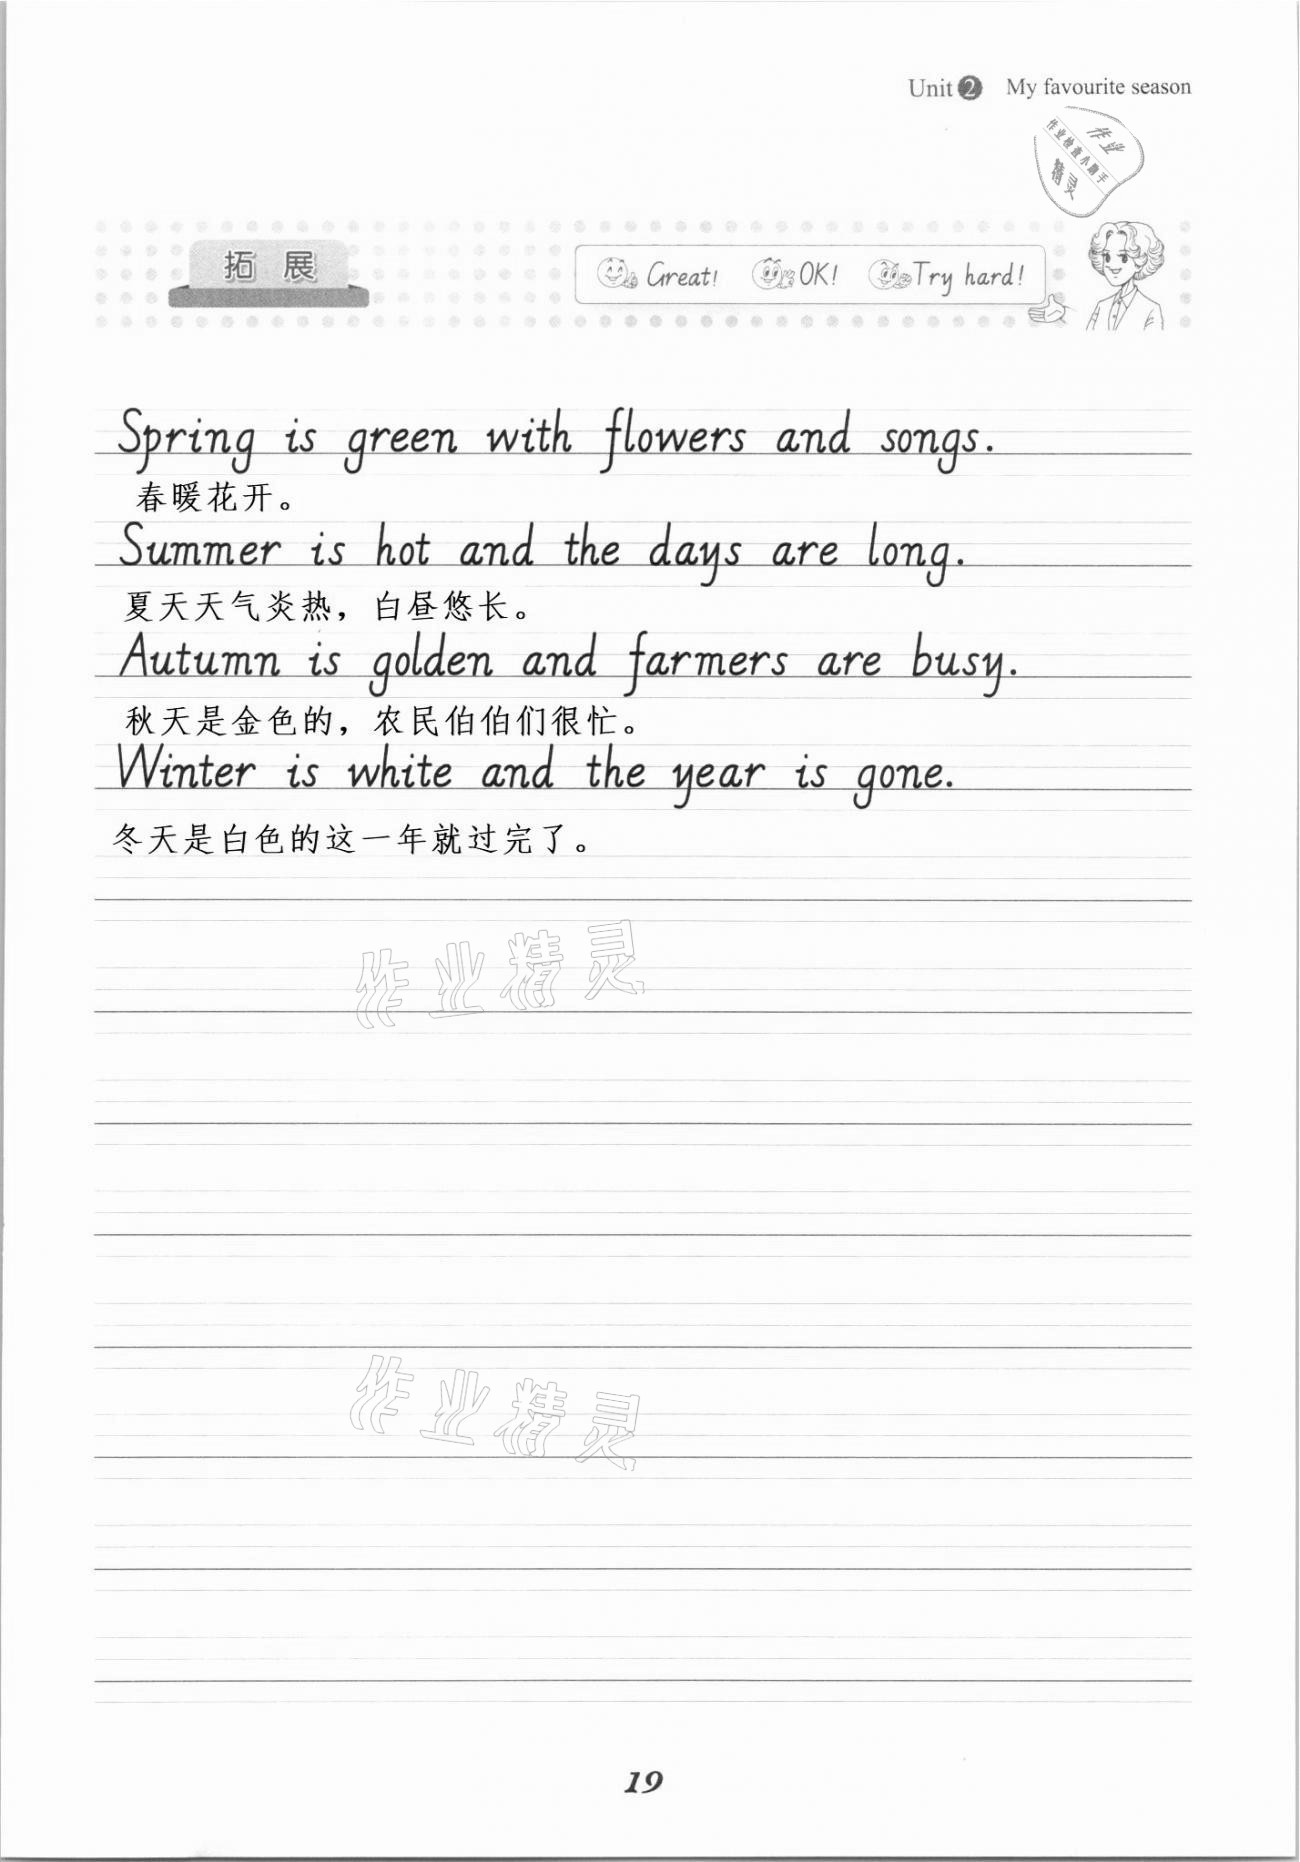 Unit 2 My favourite season
作业
作业检查小助手
精灵
拓展
Great! OK! Try hard!
Spring is green with flowers and songs.
春暖花开。
Summer is hot and the days are long.
夏天天气炎热，白昼悠长。
Autumn is golden and farmers are busy.
秋天是金色的，农民伯伯们很忙。
Winter is white and the year is gone.
冬天是白色的这一年就过完了。
作业精灵
作业精灵
19